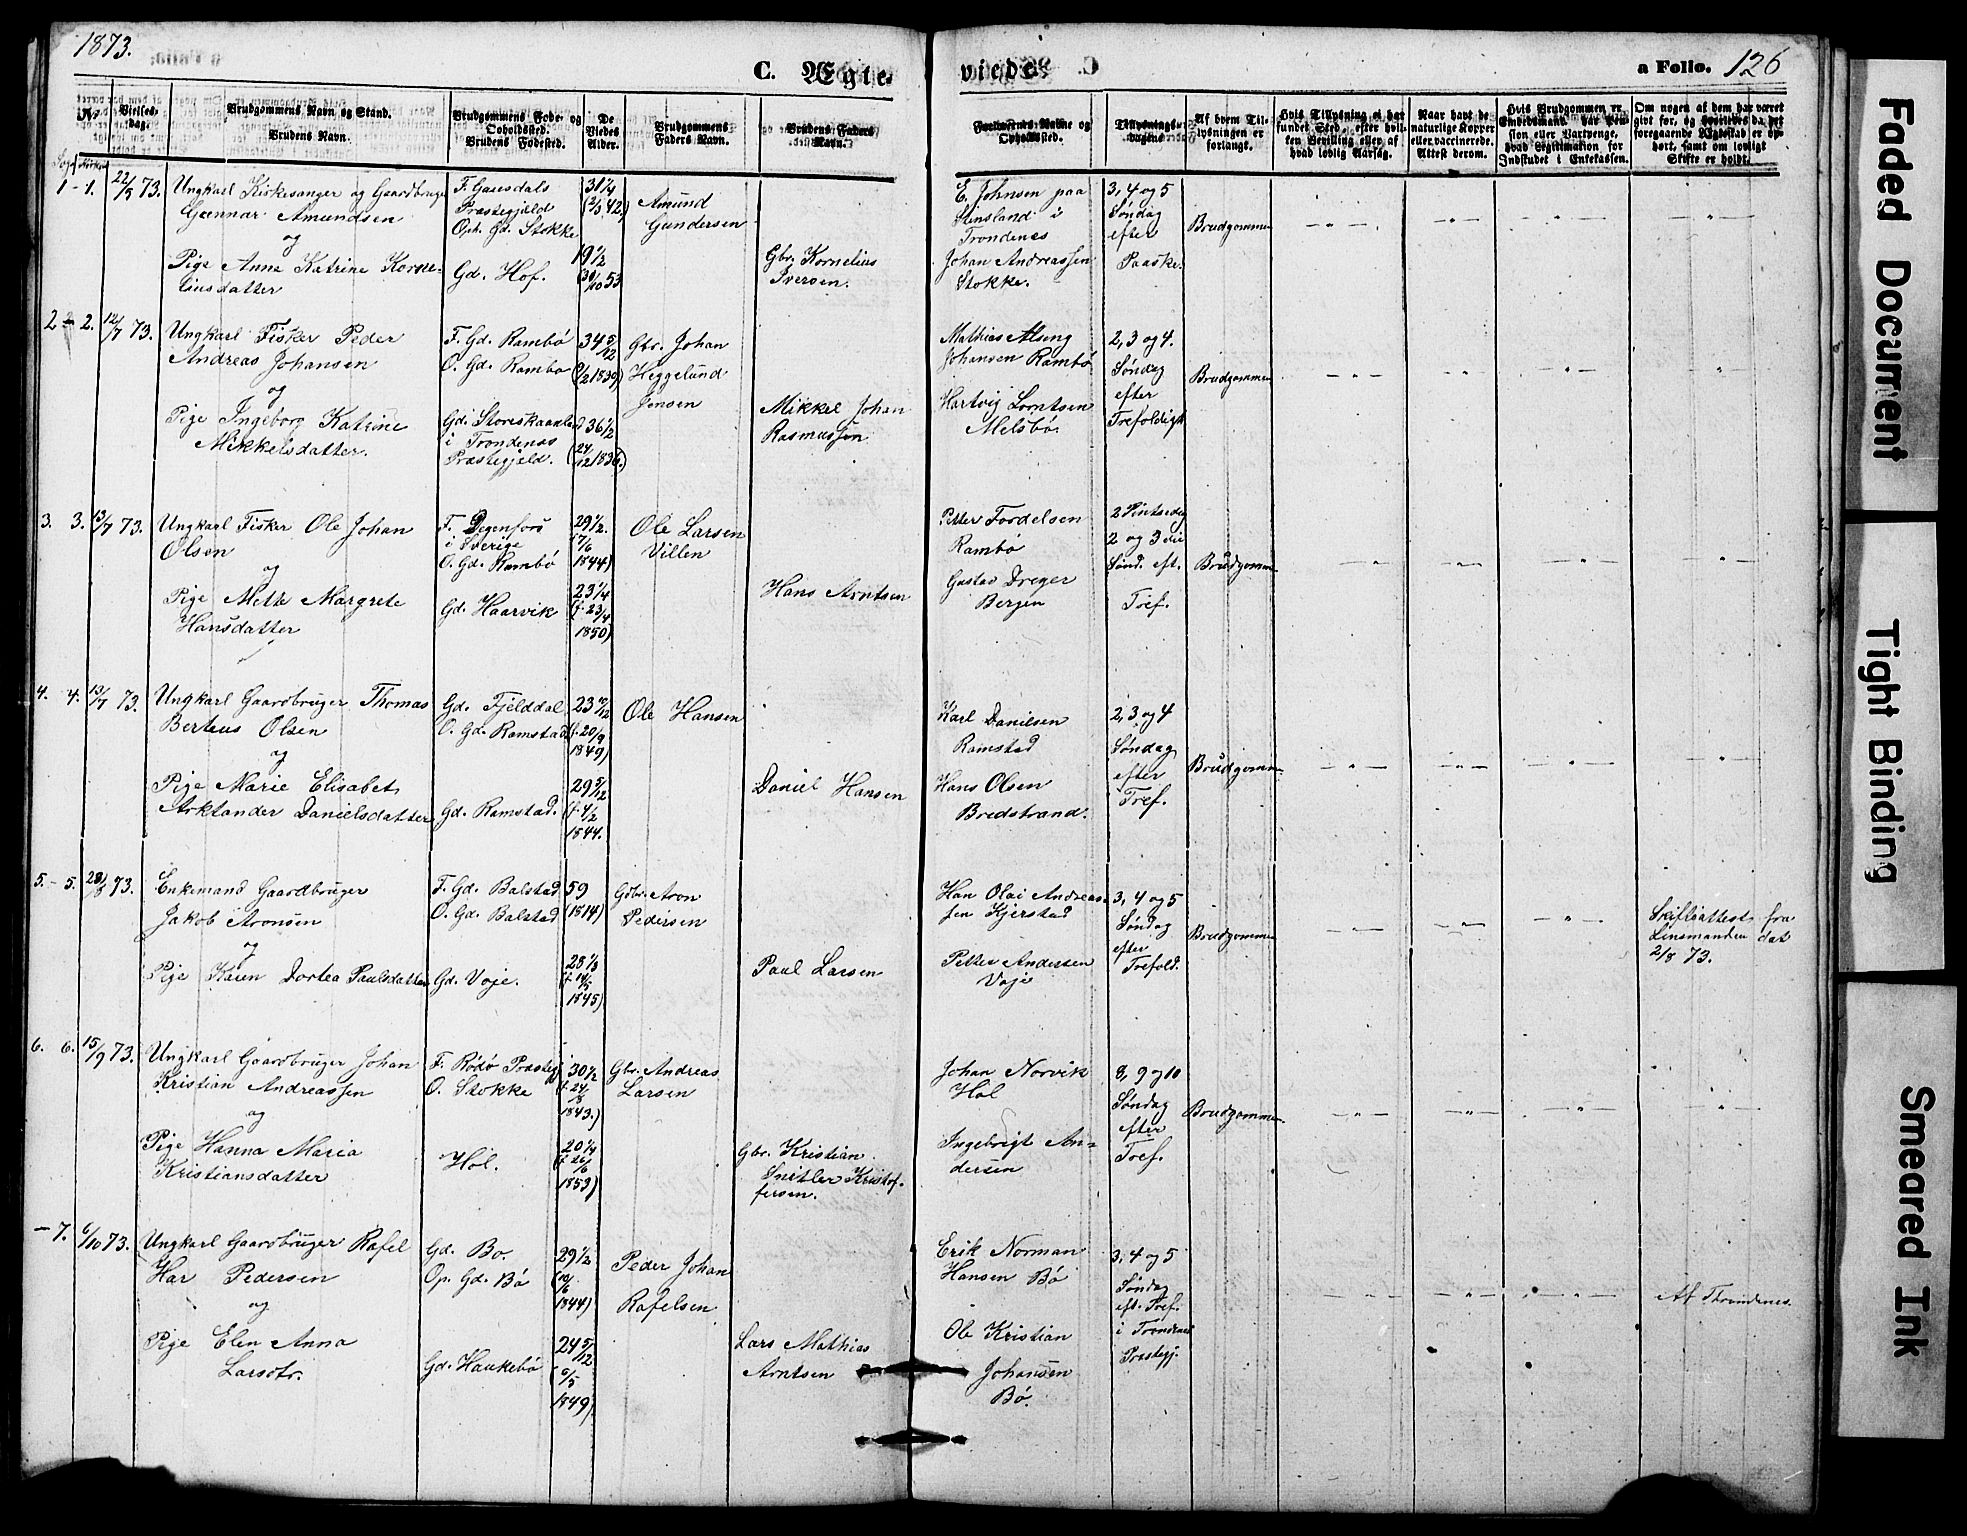 1873.
C. Ægte-
viede.
a Folio.
126
Vielses-
dag.
Brudgommens Navn og Stand.
Brudens Navn.
Brudgommens Føde- og
Opholdssted.
Brudens Fødested.
De
Viedes
Alder.
Brudgommens
Faders Navn.
Brudens Faders
Navn.
Forlovernes Navne og
Opholdssted.
Tillysnings-
dagene.
Af hvem Til-
lysningen er
forlangt.
Hvis Tillysning ei har
fundet Sted, efter hvil-
ken Bevilling eller af
hvad lovlig Aarsag.
Naar havt de
naturlige Kopper
eller vaccinerede.
Attest derom.
Hvis Brudgommen er
Embedsmand, har Pen-
sion eller Vartpenge,
hvad Legitimation for
Indskudet i Enkekassen.
Om nogen af dem har været
gift før, og hvorledes da det
foregaaende Ægteskab er op-
hørt, samt om lovligt
Skifte er holdt.
1 - 1.
22/5 73.
Ungkarl Kirkesanger og Gaardbruger
Gunnar Amundsen
og
Pige Anna Katrine Korne-
liusdatter
F. Gausdals
Præstegjeld
Oph. Gd. Stokke
Gd. Hof.
31 1/4
(2/3 42.)
19 1/2
(30/10 53
Amund
Gundersen
Gbr. Kornelius
Iversen.
E. Johnsen paa
Stensland i
Trondenes
Johan Andreassen
Stokke.
3, 4 og 5
Søndag
efter
Paaske.
Brudgommen
2 - 2.
12/7 73.
Ungkarl Fisker Peder
Andreas Johansen
og
Pige Ingeborg Katrine
Mikkelsdatter.
F. Gd. Rambø
O. Gd. Rambø
Gd. Storeskaanla
i Trondenas
Præstegjeld.
34 5/12
36 1/2
(24/12 1836.)
Gbr. Johan
Heggelund
Jensen
Mikkel Johan
Rasmussen
Mathias Alseng
Johansen Rambø
Hartvig Lorntsen
Melsbø.
2, 3 og 4.
Søndag
efter
Trefoldigh
Brudgommen
3. 3.
13/7 73.
Ungkarl Fisker Ole Johan
Olsen
og
Pige Mette Margrete
Hansdatter
F. Degenfors
i Sverige
O. Gd. Rambø
Gd. Haarvik
29 1/2.
(7/6
1844)
23 1/4
(f. 23/4
1850)
Ole Larsen
Villen
Hans Arntsen
Petter Tordelsen
Rambø
Gustav Dreyer
Bergen
2 Pintsedag
2 og 3 die
Sønd. eft.
Tref.
Brudgommen
4. 4.
13/7 73.
Ungkarl Gaardbruger Thomas
Berteus Olsen
og
Pige Marie Elisabet
Arktander Danielsdatter
Gd. Fjelddal
O. Gd. Ramstad
Gd. Ramstad.
23 10/12
(f. 20/9
1849)
29 5/12
(f. 4/2
1844.
Ole Hansen
Daniel Hansen
Karl Danielsen
Ramstad
Hans Olsen
Bredstrand.
2, 3 og 4
Søndag
efter
Tref.
Brudgommen
5. - 5.
28/8 73.
Enkemand Gaardbruger
Jakob Aronsen
og
Pige Karen Dortea Paulsdatter
F. Gd. Balstad
O. Gd. Balstad
Gd. Voje.
59
(1814)
28 1/3
(f. 14/5
1845)
Gdbr. Aron
Pedersen
Paul Larsen
Han Olai Andreas-
sen Kjerstad
Petter Andersen
Voje
3, 4 og 5
Søndag
efter
Trefold.
Brudgommen
Skifteattest fra
Linsmanden dat
2/8 73.
6. 6.
15/9 73.
Ungkarl Gaardbruger Johan
Kristian Andreassen
og
Pige Hanna Maria
Kristiansdatter
F. Rødø Præsteg.
O. Stokke
Hol.
30 1/2
(f. 24/3
1843.)
20 1/4
(f. 26/6
1853)
Gbr. Andreas
Larsen
Gbr. Kristian
Snitler Kristof-
fersen.
Johan Norvik
Hol
Ingebrigt An-
dersen
8, 9 og 10
Søndag
efter
Tref.
Brudgommen
- 7.
6/10 73.
Ungkarl Gaardbruger Rafel
Har Pedersen
og
Pige Elen Anna
Larsdtr.
Gd. Bo.
Op. Gd. Bø
Gd. Haukebø
29 1/2
1844)
24 5/12
1849)
Peder Johan
Rafelsen
Lars Mathias
Arntsen
Erik Norman
Hansen Bø
Ole Kristian
Johansen
Bø.
3, 4 og 5
Søndag
eft. Tref.
i Trondenes
Præstegj.
Af Throndenes.
Faded Document
Tight Binding
Smeared Ink